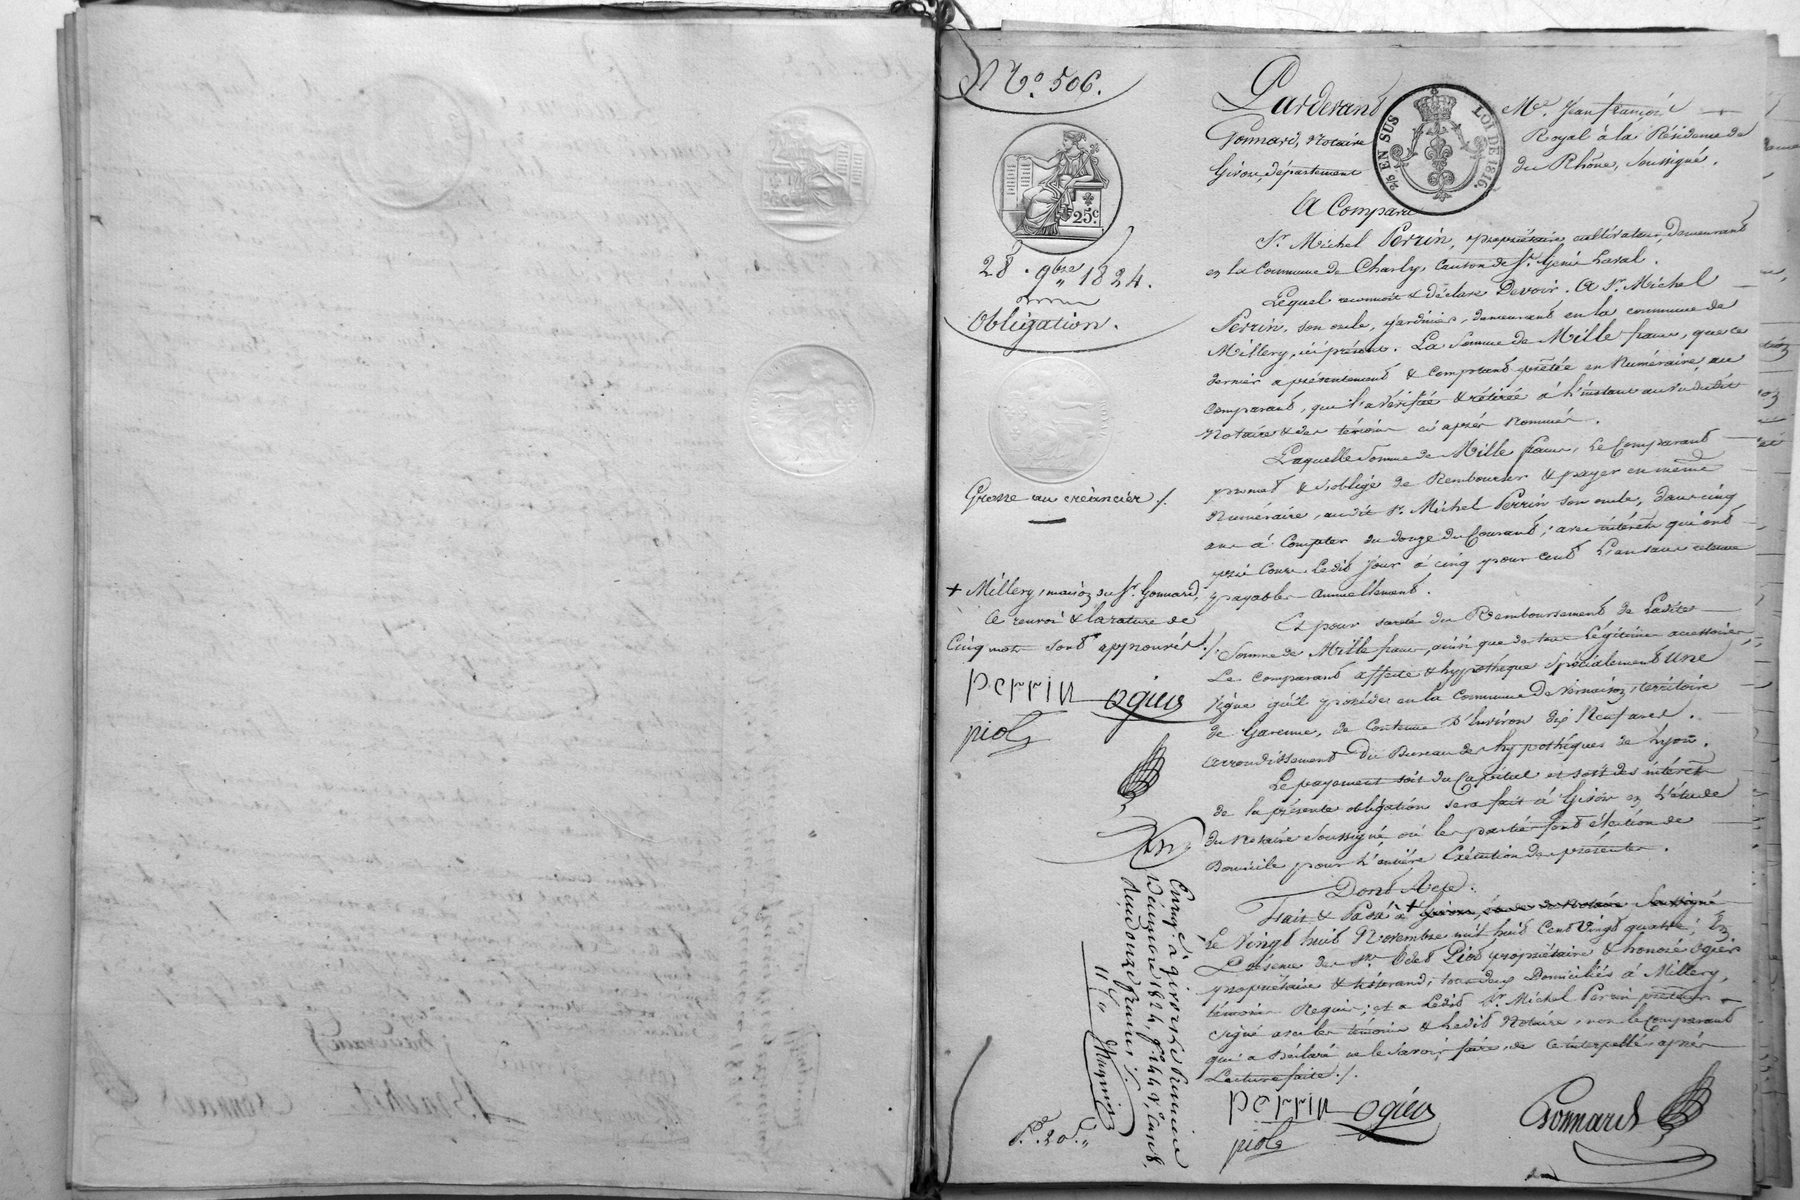 N.° 506.
25.c
28. 9bre 1824.
Obligation.
Grosse au créancier ./.
+ Millery, maison du Sr. Gonnard,
Ce renvoi & la rature de
Cinq mots sont approuvés ./.
perrin ogier
piot
Enreg.é à Givors le Premier
décembre 1824, f.° 44 v.°, Cases 8.
Reçu onze francs ./.
11 f. „
EN SUS
LOI DE 1816.
Pardevant Me. Jean françois
Gonnard, Notaire Royal à la Résidence de
Givors, département du Rhône, Soussigné.
A Comparu
Sr. Michel Perrin, propriétaire cultivateur, demeurant
en la Commune de Charly, Canton de St. Genis Laval.
Lequel reconnoit & déclare Devoir. A Sr. Michel
Perrin, son oncle, jardinier, demeurant en la commune de
Millery, ici présent. La Somme de Mille francs, que ce
dernier a présentement & Comptant prêtée en Numéraire, au
Comparant, qui l'a vérifiée & rétirée à l'instant au vu dudit
Notaire & des témoins ci après Nommés.
Laquelle Somme de Mille francs, le Comparant
promet & s'oblige de Rembourser & payer en même
Numéraire, audit Sr. Michel Perrin son oncle, dans cinq
ans à Compter du douze du Courant; avec intérêts qui ont
pris Cours ledit jour à cinq pour cent L'an sans retenue
payables Annuellement.
Et pour sureté du Remboursement de Ladite
Somme de Mille francs, ainsi que de tous Légitimes accessoires,
Le Comparant affecte & hypothèque Spécialement Une
Vigne qu'il possède en la Commune de Vernaison, territoire
de Garenne, de Contenue D'Environ dix Neuf ares.
Arrondissement du Bureau des hypothèques de Lyon.
Le payement soit du Capital et soit des intérêts
de la présente obligation sera fait à Givors en L'étude
du Notaire Soussigné où les parties font élection de
Domicile pour L'entière Exécution des présentes.
Dont Acte.
Fait & Passé à + Givors, étude du Notaire Soussigné
Le Vingt huit Novembre mil huit Cent Vingt quatre; En
Présence de Srs. Piot propriétaire & honoré Ogier
propriétaire & tisserand, tous deux Domiciliés à Millery,
témoins Requis; et a Ledit Sr. Michel Perrin prêteur
Signé avec les témoins & Ledit Notaire, non le Comparant
qui a Déclaré ne le Savoir faire, de Ce interpellé après
Lecture faite ./.
perrin ogier
piot
Gonnard